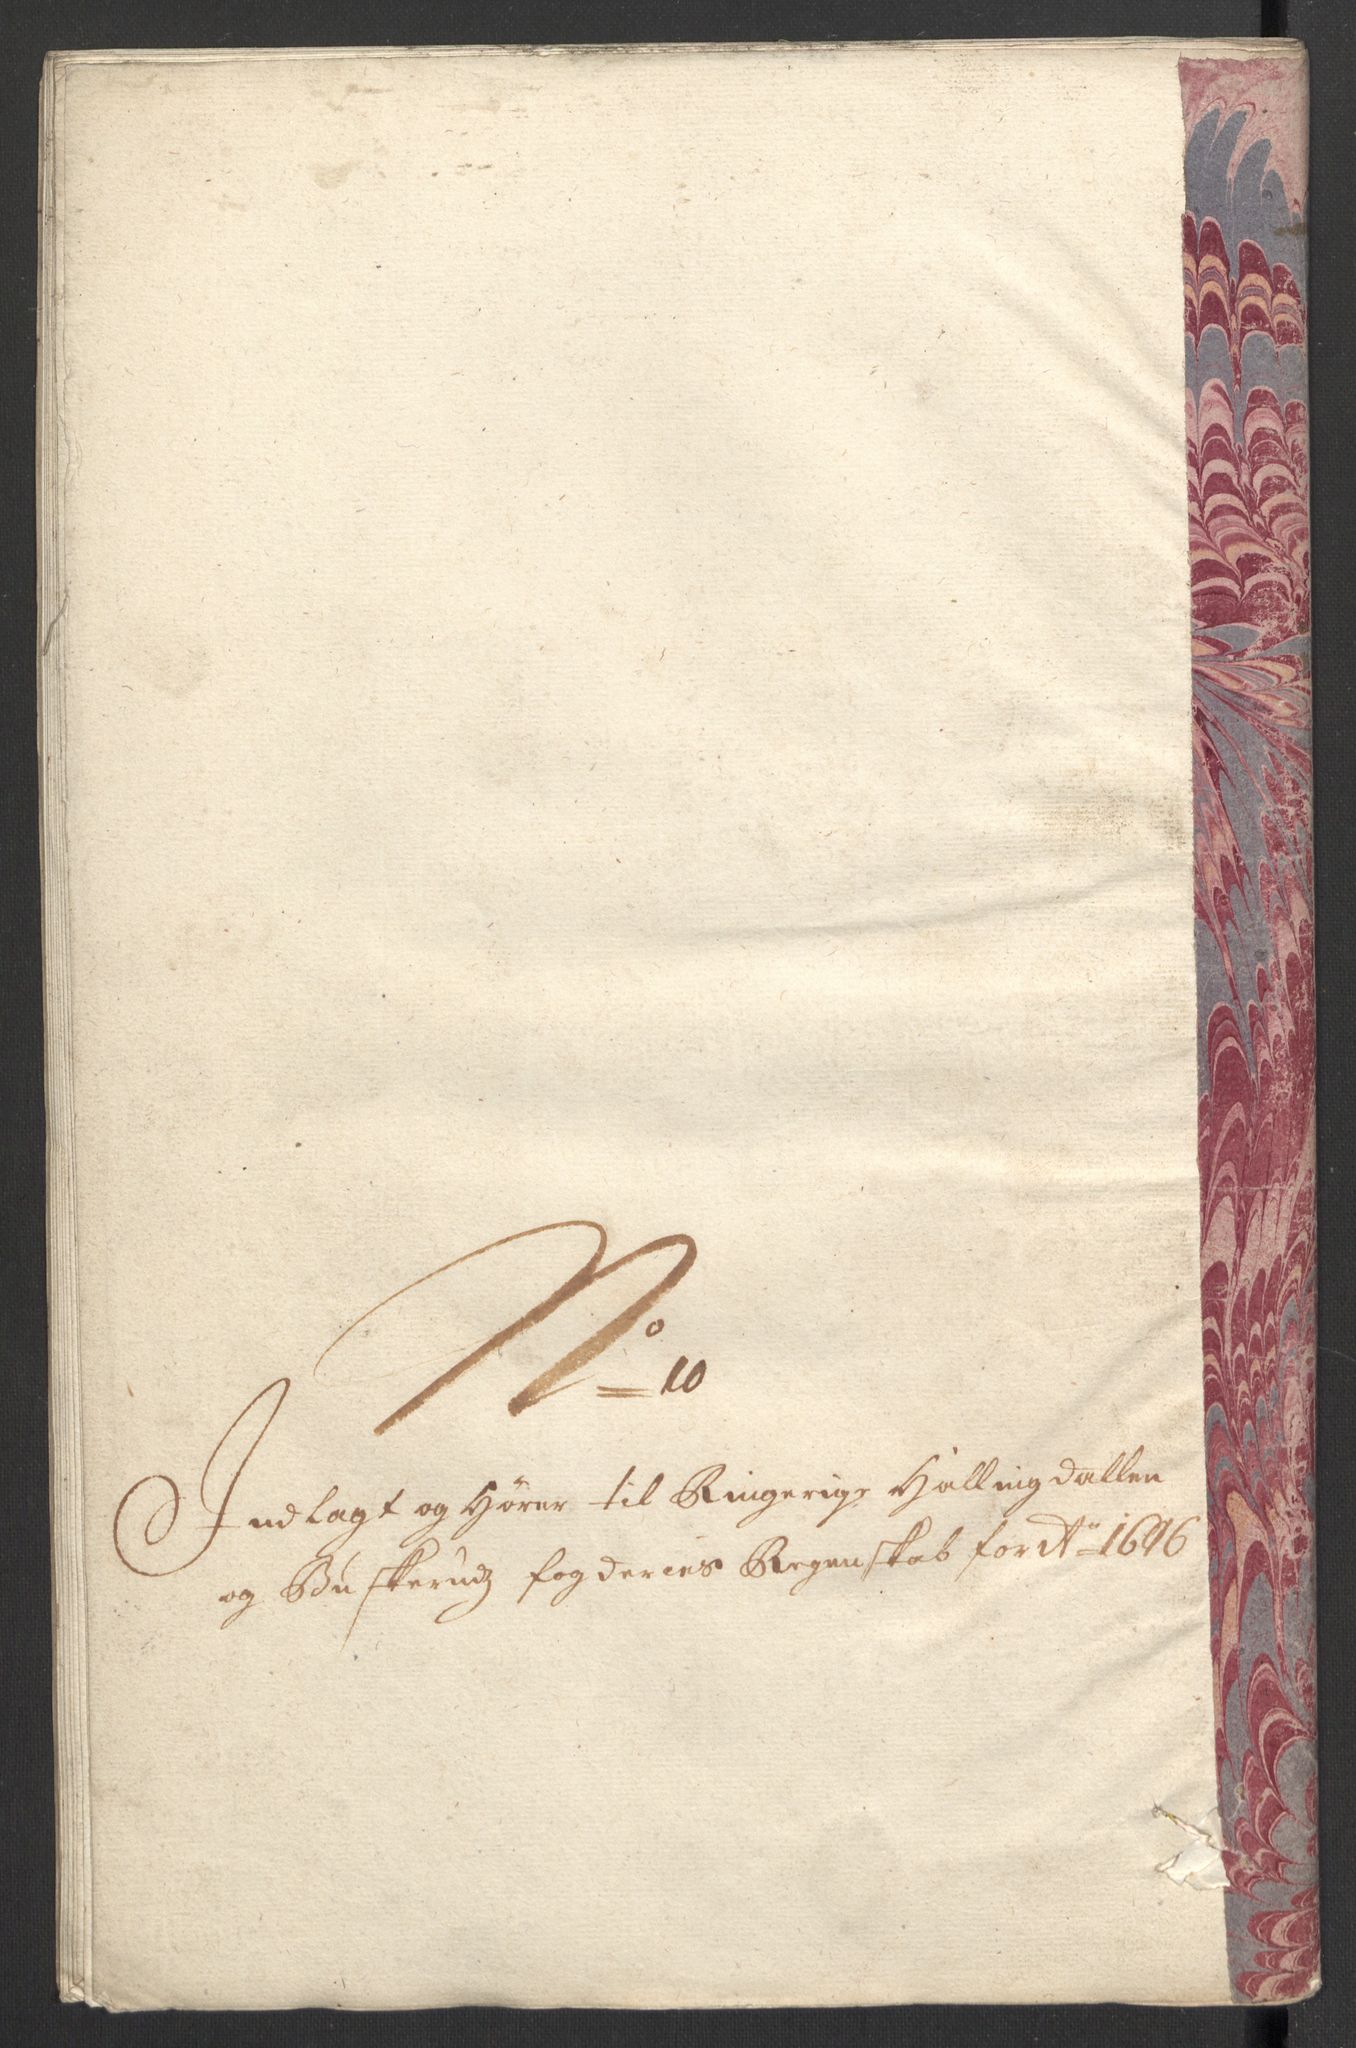 No 10
Indlagt og Hörer til Ringerige Hallingdallen
og Buskerudz fogderies Regenskab for Ao 1696